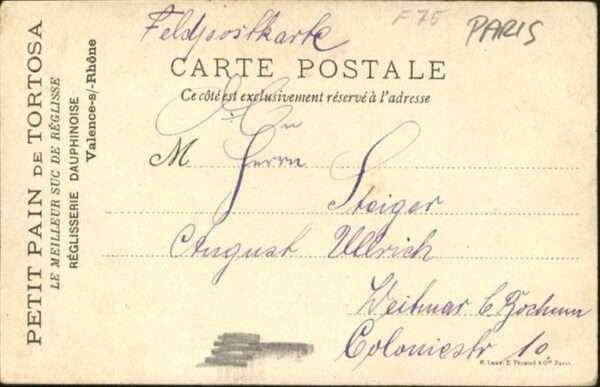 Feldpostkarte
F 75
PARIS
CARTE POSTALE
Ce côté est exclusivement réservé à l'adresse
An
M Herrn
Steiger
August Ullrich
Weitmar b. Bochum
Coloniestr 10
PETIT PAIN DE TORTOSA
LE MEILLEUR SUC DE RÉGLISSE
RÉGLISSERIE DAUPHINOISE
Valence-s/-Rhône